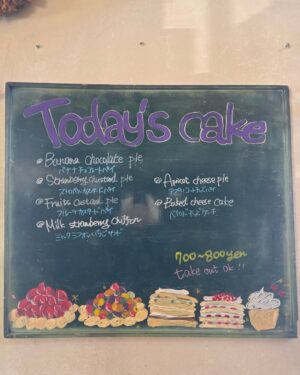 Today's cake
Banana chocolate pie
バナナチョコレートパイ
Strawberry custard pie
ストロベリーカスタードパイ
Fruits custard pie
フルーツカスタードパイ
Milk strawberry chiffon
ミルクシフォン
Apricot cheese pie
アプリコットチーズパイ
Baked cheese cake
ベイクドチーズケーキ
700~800yen
take out ok!!